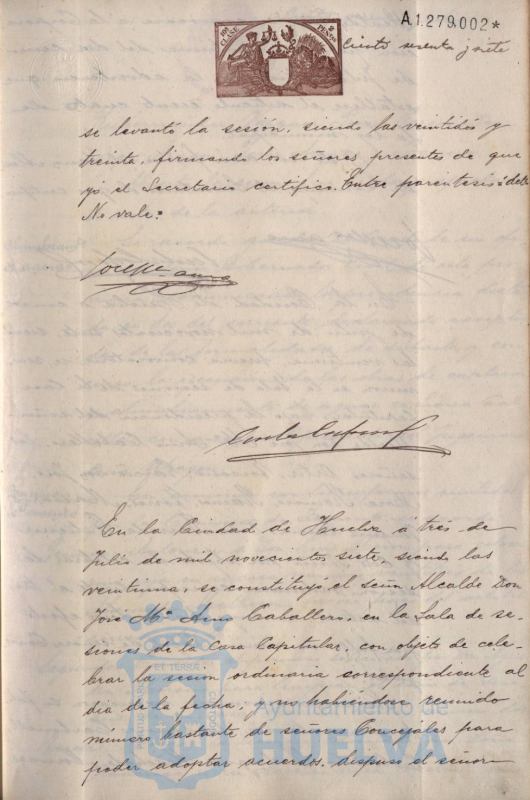 A.1.279.002*
CLASE
PESETAS
Ciento sesenta y siete
se levantó la sesión, siendo las veintidós y
treinta, firmando los señores presentes de que
yo el Secretario certifico. Entre parentesis: de
No vale=
En la Ciudad de Huelva á tres de
Julio de mil novecientos siete, siendo las
veintiuna, se constituyó el señor Alcalde Don
José Mª Amo Caballero, en la Sala de se-
siones de la Casa Capitular, con objeto de cele-
brar la sesión ordinaria correspondiente al
dia de la fecha; y no habiéndose reunido
número bastante de señores Concejales para
poder adoptar acuerdos, dispuso el señor
Ayuntamiento de
HUELVA